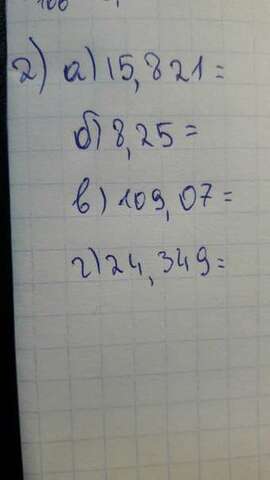 2) а) 15,821 =
б) 8,25 =
в) 109,07 =
г) 24,349 =